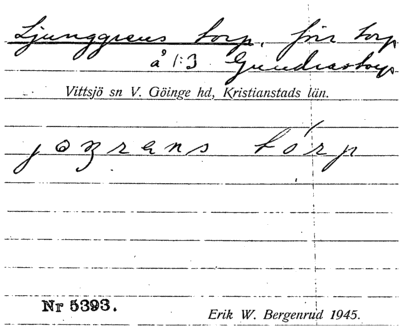 Ljunggrens torp, för torp
å 1:3 Gundrastorp
Vittsjö sn V. Göinge hd, Kristianstads län.
tórp
Nr 5393.
Erik W. Bergenrud 1945.